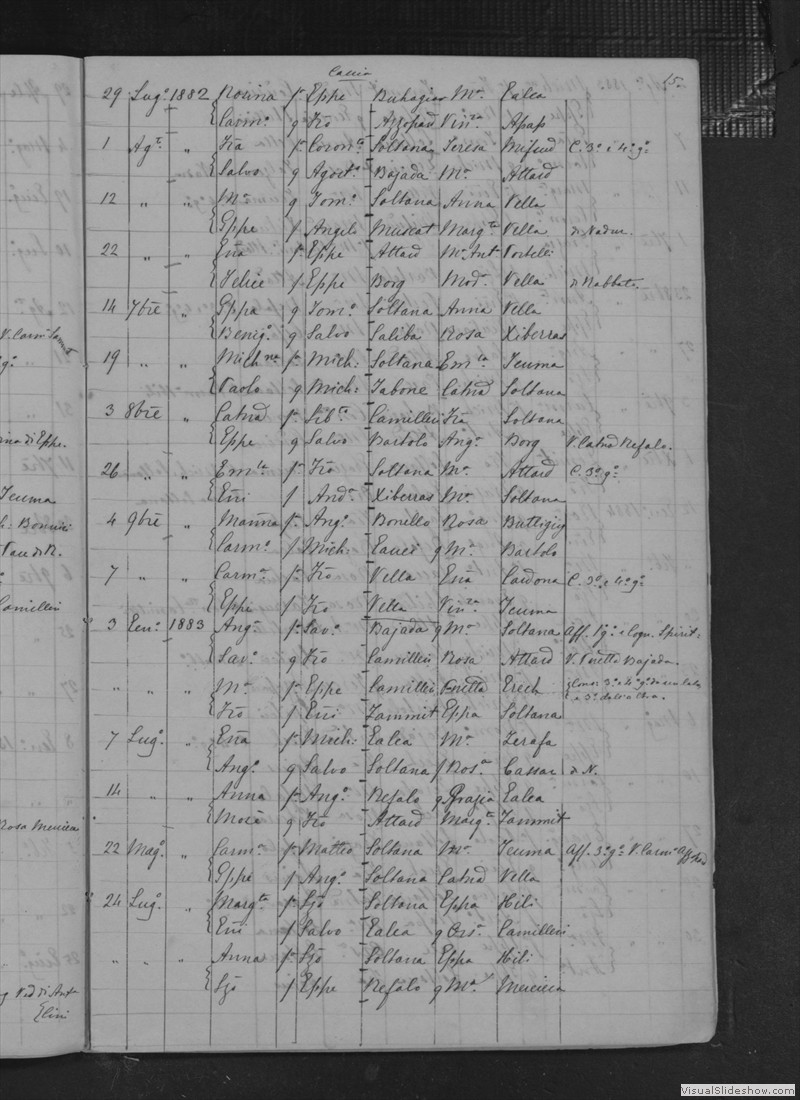 Caccia
15.
29 Lug.º 1882 { Rosina f. Eppe Buhagiar M.ª Ealea
Carm.º q Fr̄o Azzopard Vin.za Apap
1 Agt. „ { Fr̄a f. Coron.to Soltana Teresa Mifsud C. 3º e 4º gº
Salvo q Agost.º Bajada M.ª Attard
12 „ „ { M.ª q Tom.º Soltana Anna Vella
Eppe f Angelo Muscat Marg.ta Vella di Nadur.
22 „ „ { Em̄a f. Eppe Attard M.ª Ant Portelli
Felice f Eppe Borg Mod.ª Vella di Rabbato
14 7bre „ { Eppa q Tom.º Soltana Anna Vella
Benig.º q Salvo Saliba Rosa Xiberras
19 „ „ { Mich.na f. Mich: Soltana Em.la Teuma
Paolo q Mich: Tabone Catnā Soltana
3 8bre „ { Catnā f. Lib.to Camilleri Fr̄a Soltana
Eppe q Salvo Bartolo Ang.ª Borg V. Catnā Refalo.
26 „ „ { Em.la f. Fr̄o Soltana M.ª Attard C. 3º gº
Em̄i f And.ª Xiberras M.ª Soltana
4 9bre „ { Marīna f. Ang.º Bonello Rosa Buttigieg
Carm.º f Mich: Eauci q M.ª Bartolo
7 „ „ { Carm.ª f. Fr̄o Vella Em̄a Cardona C. 3º e 4º gº
Eppe f Fr̄o Vella Vin.za Teuma
3 Een.º 1883 { Ang.ª f. Sav.º Bajada q M.ª Soltana Aff. 1º gº e Cogn. Spirit.
Sav.º q Fr̄o Camilleri Rosa Attard V. Pnetta Bajada.
„ „ „ { M.ª f. Eppe Camilleri Pnetta Erech
Fr̄o f Em̄i Zammit Eppa Soltana
7 Lug.º „ { Em̄a f. Mich: Ealea M.ª Zerafa
Ang.º q Salvo Soltana f Ros.ª Cassar di N.
14 „ „ { Anna f. Ang.º Refalo q Grazia Ealea
Mosè q Fr̄o Attard Marg.ta Zammit
22 Mag.º „ { Carm.ª f. Matteo Soltana M.ª Teuma Aff. 3º gº V. Carm.º
Eppe f Ang.º Soltana Catnā Vella
24 Lug.º „ { Marg.ta f. Gjō Soltana Eppa Hili
Em̄i f Salvo Ealea q Ors.ª Camilleri
„ „ „ { Anna f. Gjō Soltana Eppa Hili
Gjō f Eppe Refalo q M.ª Mercieca
Teuma
Camilleri
Rosa Mercieca
VisualSlideshow.com